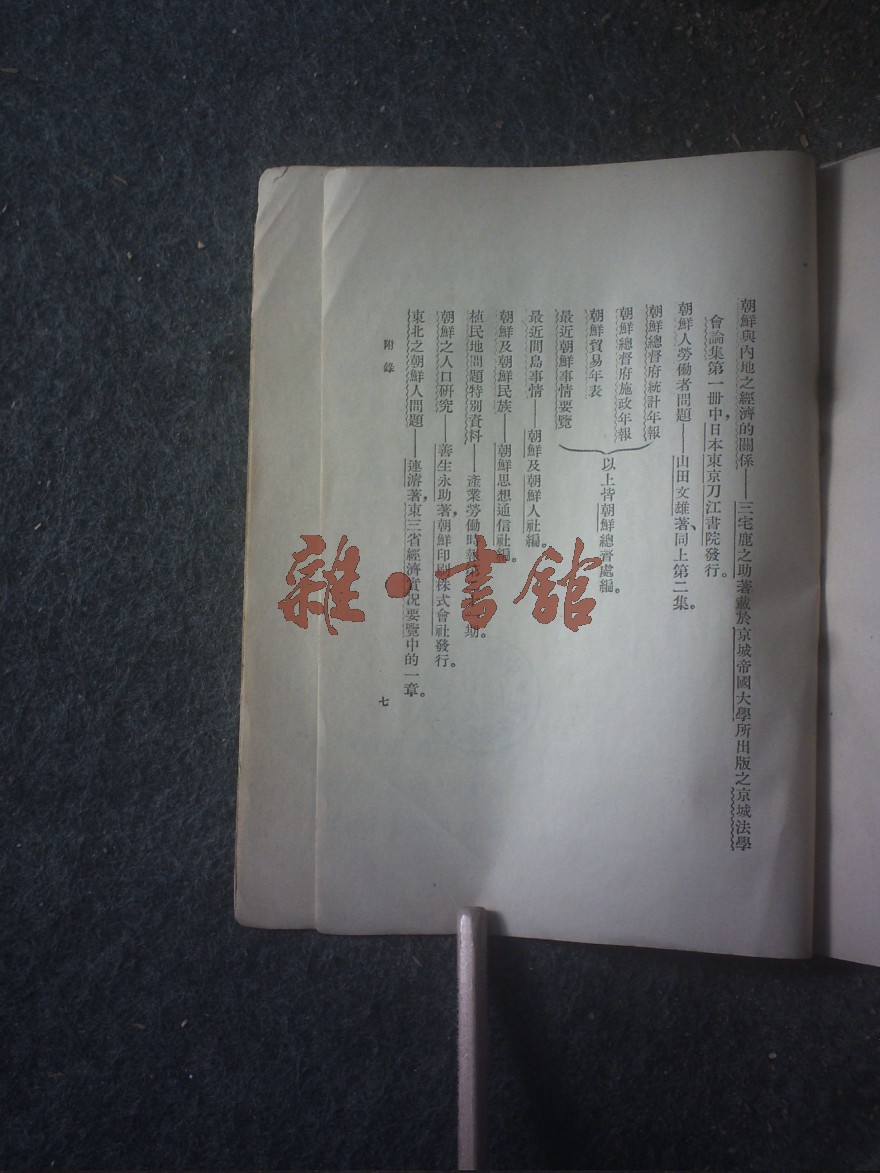 朝鮮與內地之經濟的關係——三宅鹿之助著載於京城帝國大學所出版之京城法學
會論集第一冊中，日本東京刀江書院發行。
朝鮮人勞働者問題——山田文雄著、同上第二集。
朝鮮總督府統計年報
朝鮮總督府施政年報
朝鮮貿易年表
最近朝鮮事情要覽
以上皆朝鮮總督處編。
最近間島事情——朝鮮及朝鮮人社編。
朝鮮及朝鮮民族——朝鮮思想通信社編。
植民地問題特別資料——產業勞働時報 期。
朝鮮之人口研究——善生永助著，朝鮮印刷株式會社發行。
東北之朝鮮人問題——連濬著，東三省經濟實況要覽中的一章。
附錄
七
雜·書館